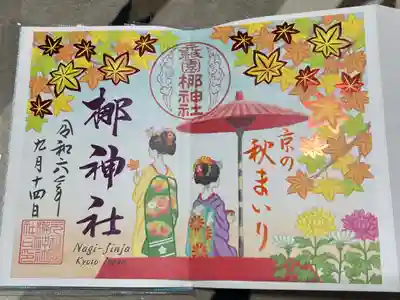 京の
秋まいり
梛神社
Nagi-Jinja
Kyoto Japan
令和六年
九月十四日